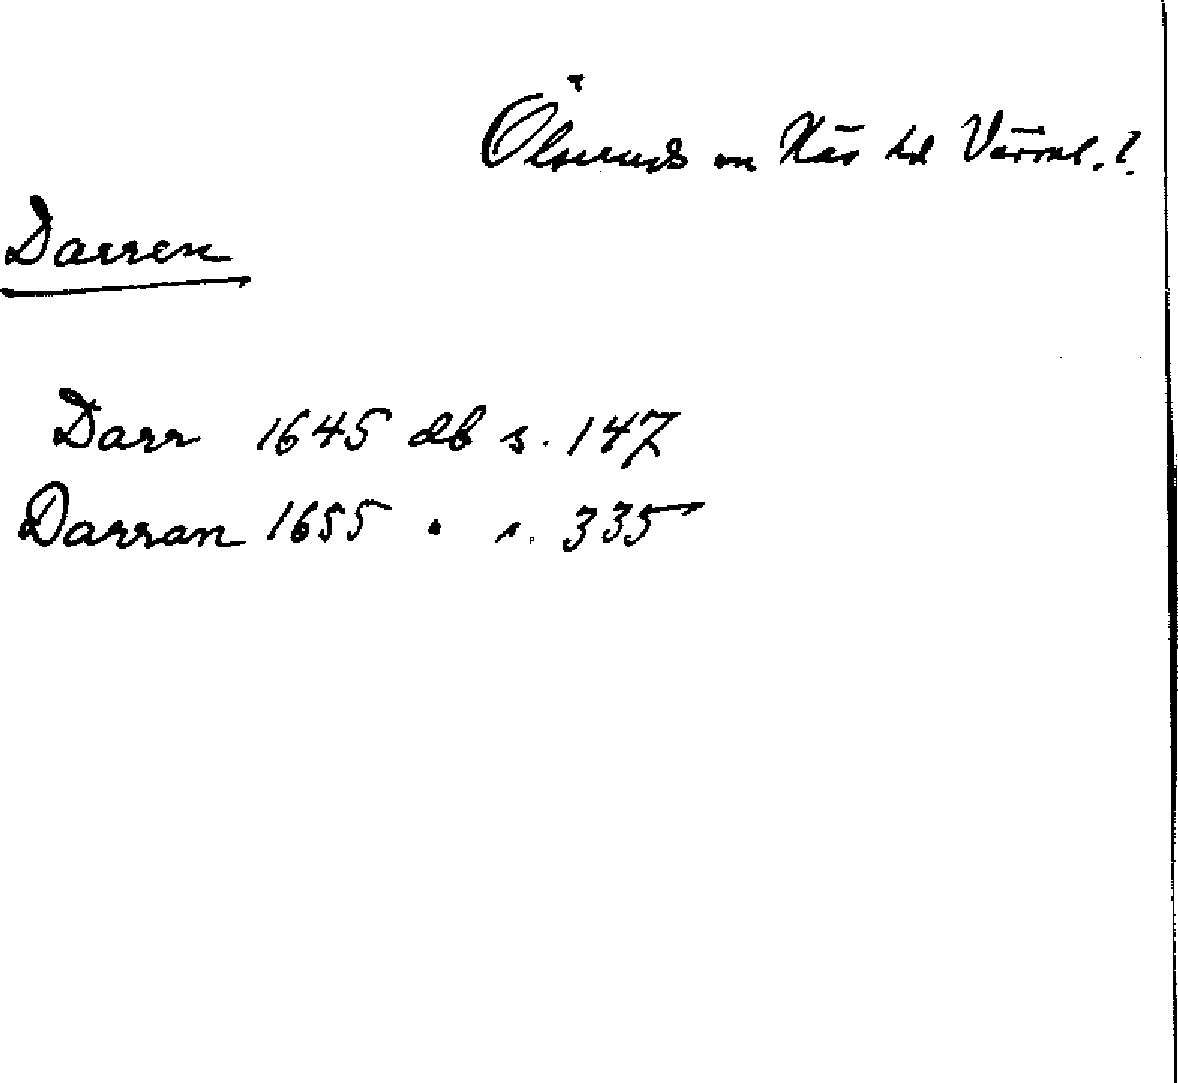 Ölseruds sn Näs hd Värml. l.
Darren
Darr 1645 db s. 147
Darran 1655 " s. 335